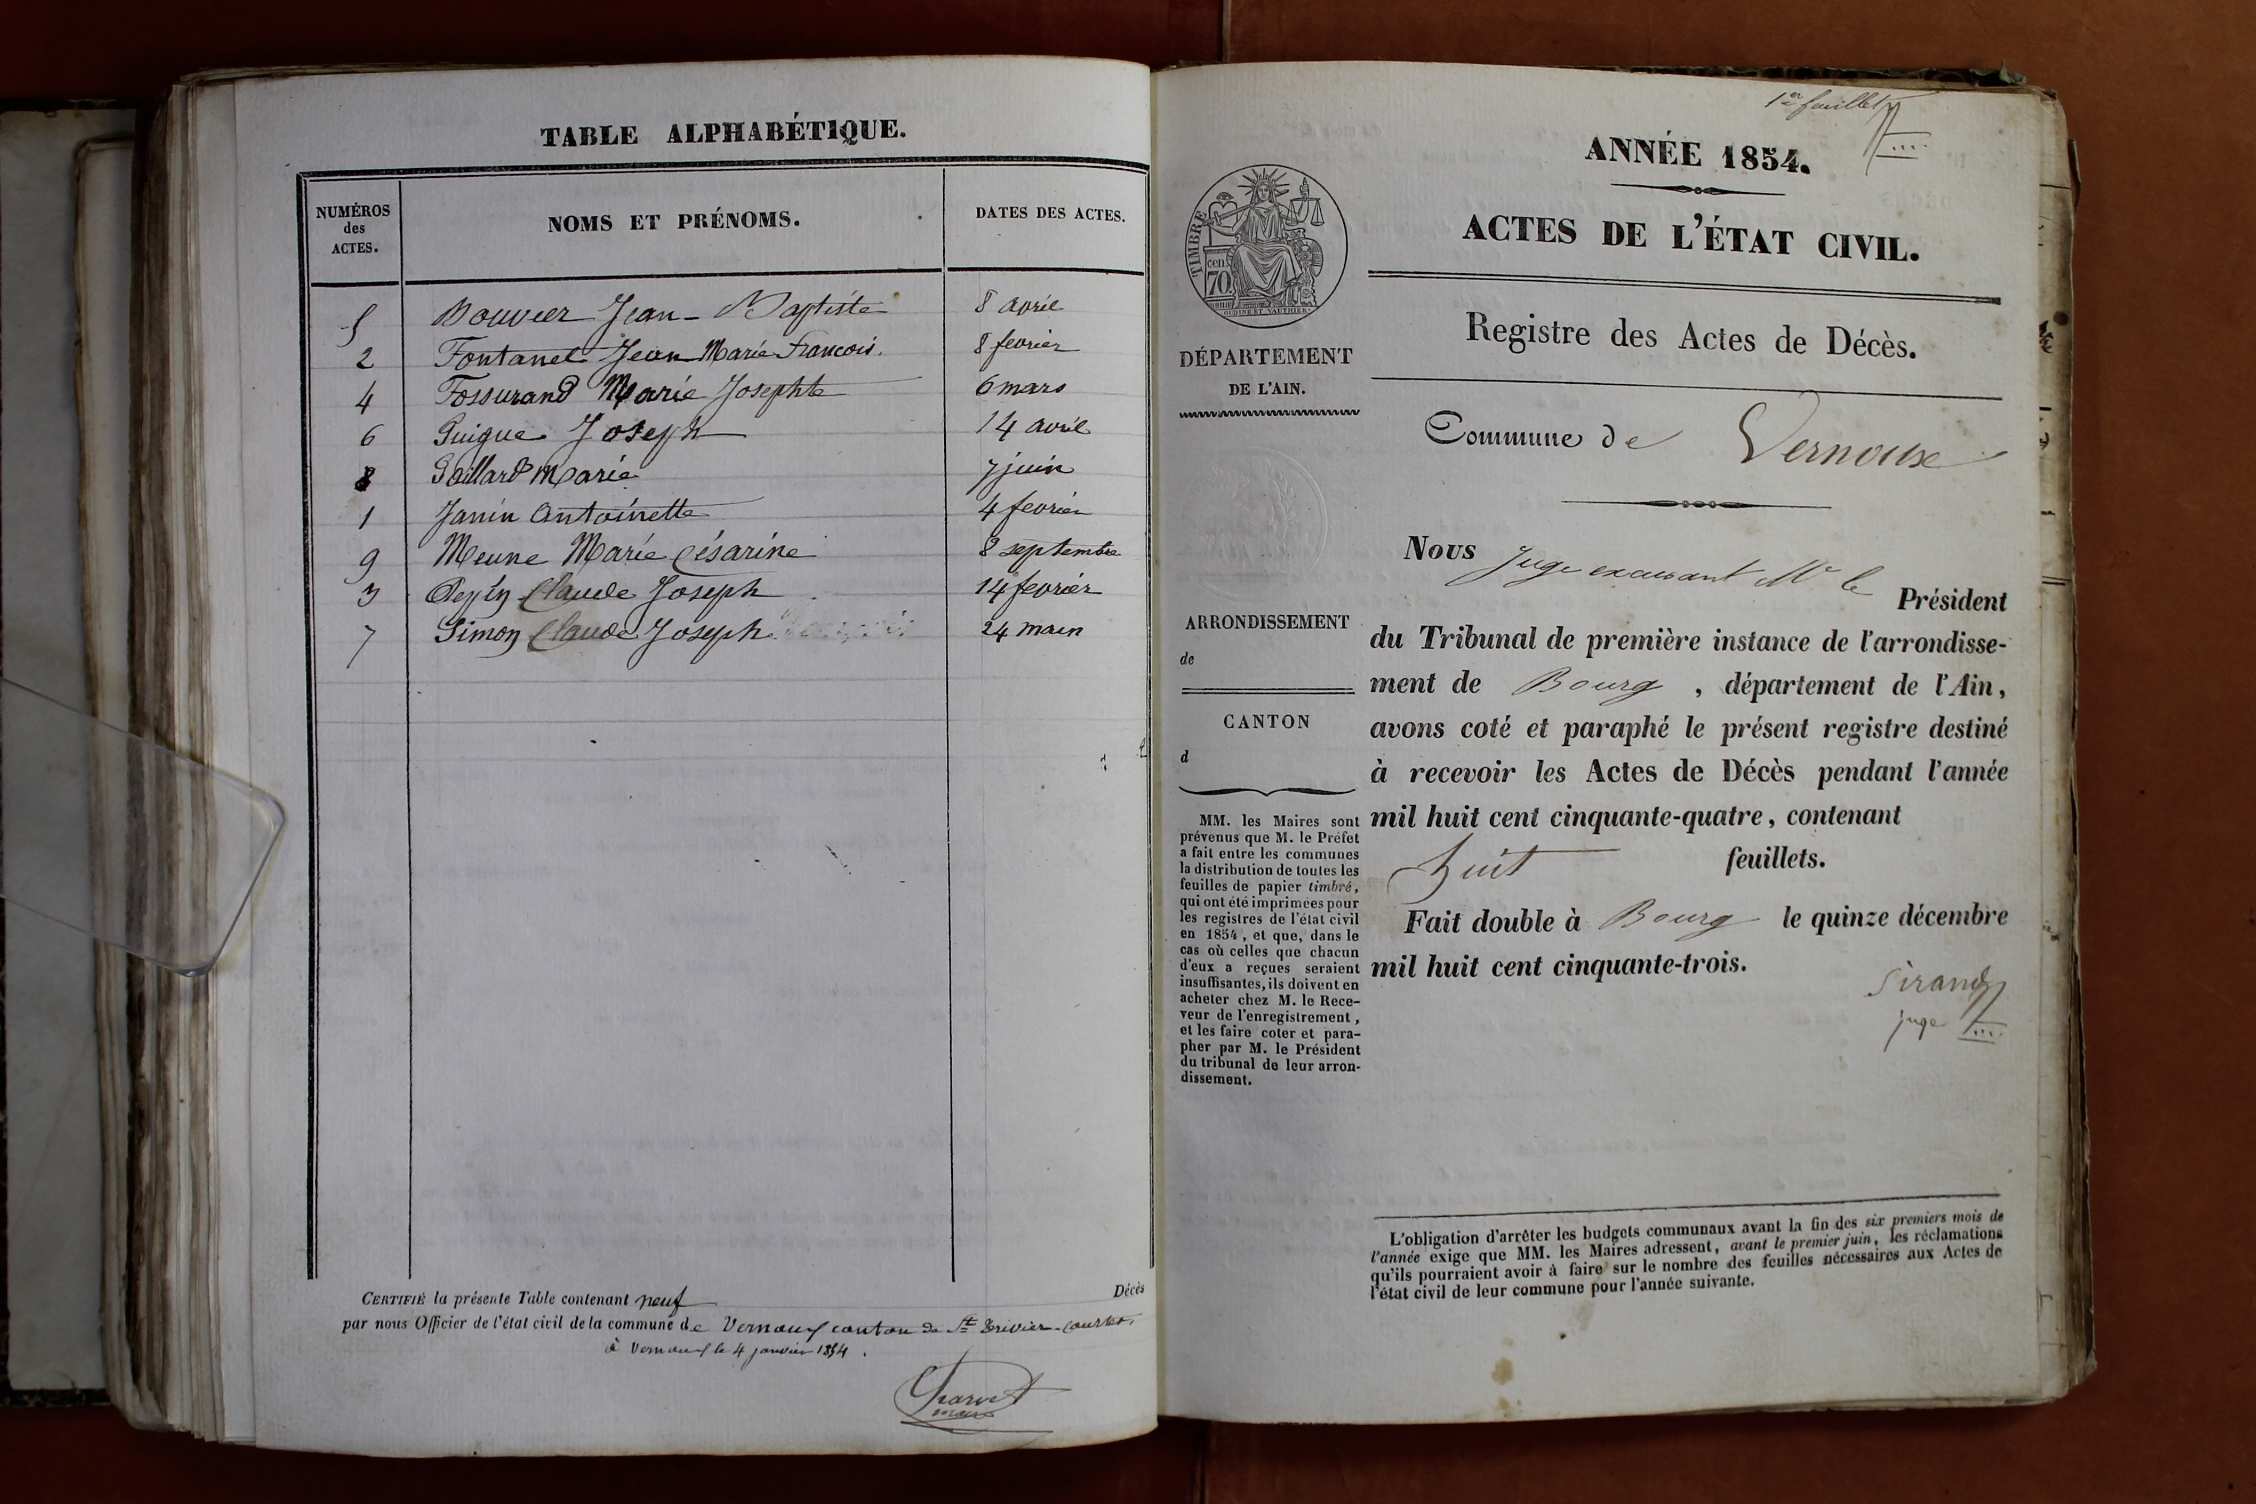 TABLE ALPHABÉTIQUE.
NUMÉROS
des
ACTES.
NOMS ET PRÉNOMS.
DATES DES ACTES.
5 Bouvier Jean-Baptiste 8 avril
2 Fontanel Jean Marie François. 8 fevrier
4 Fossurand Marie Josephte 6 mars
6 Guigue Joseph 14 avril
8 Gaillard Marie 7 juin
1 Janin Antoinette 4 fevrier
9 Meune Marie Césarine 8 septembre
3 Claude Joseph 14 fevrier
7 Simon Claude Joseph 24 main
CERTIFIÉ la présente Table contenant neuf Décès
par nous Officier de l'état civil de la commune de Vernoux canton de St Trivier-Courtes,
à Vernoux le 4 janvier 1854.
maire
1er feuillet
ANNÉE 1854.
ACTES DE L'ÉTAT CIVIL.
Registre des Actes de Décès.
Commune de Vernoux
TIMBRE
cen.
70
OUDINÉ ET VAUTHIER
DÉPARTEMENT
DE L'AIN.
ARRONDISSEMENT
de
CANTON
d
MM. les Maires sont
prévenus que M. le Préfet
a fait entre les communes
la distribution de toutes les
feuilles de papier timbré,
qui ont été imprimées pour
les registres de l'état civil
en 1854, et que, dans le
cas où celles que chacun
d'eux a reçues seraient
insuffisantes, ils doivent en
acheter chez M. le Rece-
veur de l'enregistrement,
et les faire coter et para-
pher par M. le Président
du tribunal de leur arron-
dissement.
Nous Juge excusant Mr le Président
du Tribunal de première instance de l'arrondisse-
ment de Bourg, département de l'Ain,
avons coté et paraphé le présent registre destiné
à recevoir les Actes de Décès pendant l'année
mil huit cent cinquante-quatre, contenant
huit feuillets.
Fait double à Bourg le quinze décembre
mil huit cent cinquante-trois.
Sirand
juge
L'obligation d'arrêter les budgets communaux avant la fin des six premiers mois de
l'année exige que MM. les Maires adressent, avant le premier juin, les réclamations
qu'ils pourraient avoir à faire sur le nombre des feuilles nécessaires aux Actes de
l'état civil de leur commune pour l'année suivante.